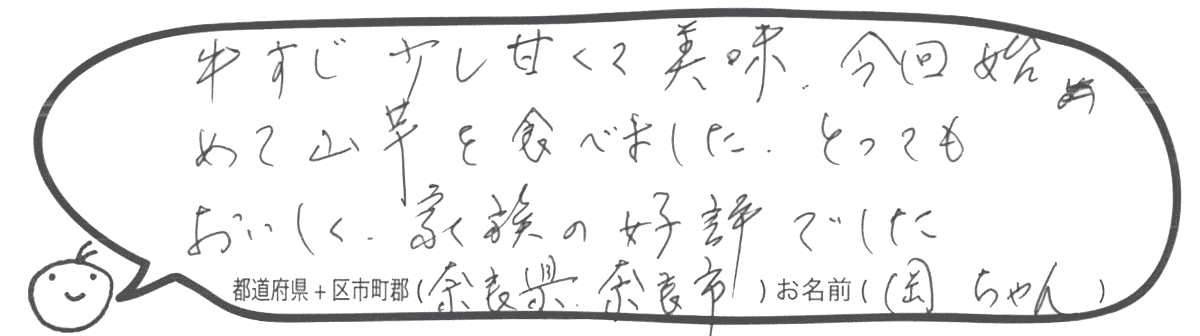 牛すじ少し甘くて美味.今回始め
めて山芋を食べました.とっても
おいしく.家族の好評でした
都道府県+区市町郡(奈良県.奈良市)お名前(岡ちゃん)